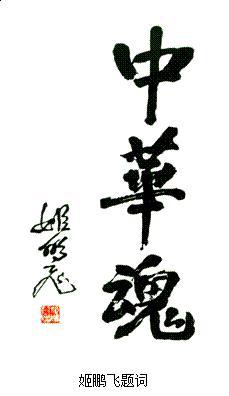 中華魂
姬鹏飞
姬鹏飞题词